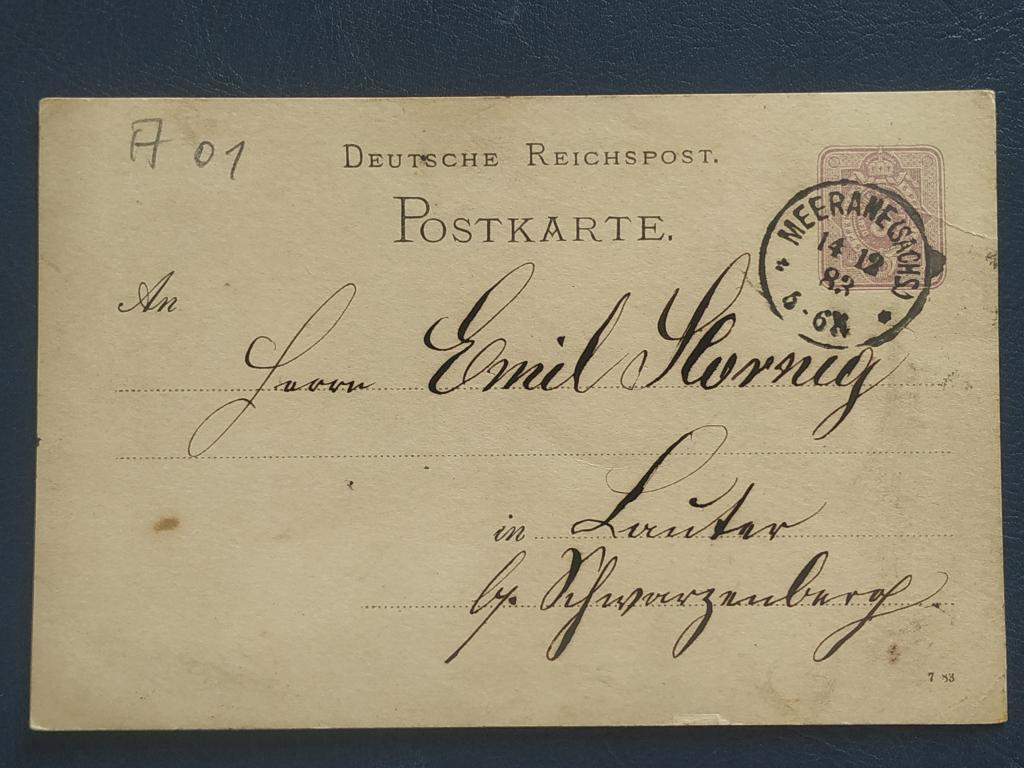 A 01
DEUTSCHE REICHSPOST.
POSTKARTE.
MEERANE (SACHS)
14 12
83
5-6N
An
Herrn Emil Hornig
in Lauter
b/. Schwarzenberg.
7 83